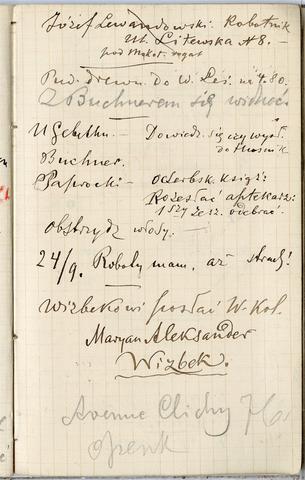 Józef Lewandowski. Robotnik
Ul. Litewska № 8. —
pod Mokot. rogat
Pud. drewn. do W. Leś. nr 480.
Z Buchnerem się widzieć.
U Gebethn. — Dowiedz. się czy wysł.
do Mlośnik
Buchner.
Paprocki — odebr. książ:
Rozesłać aptekarz:
1szy zesz. odebrać.
Obstrzydz włosy. —
24/9. Roboty mam, aż strach!
Wizbekowi posłać W. Kol.
Maryan Aleksander
Wizbek.
Avenue Clichy 76